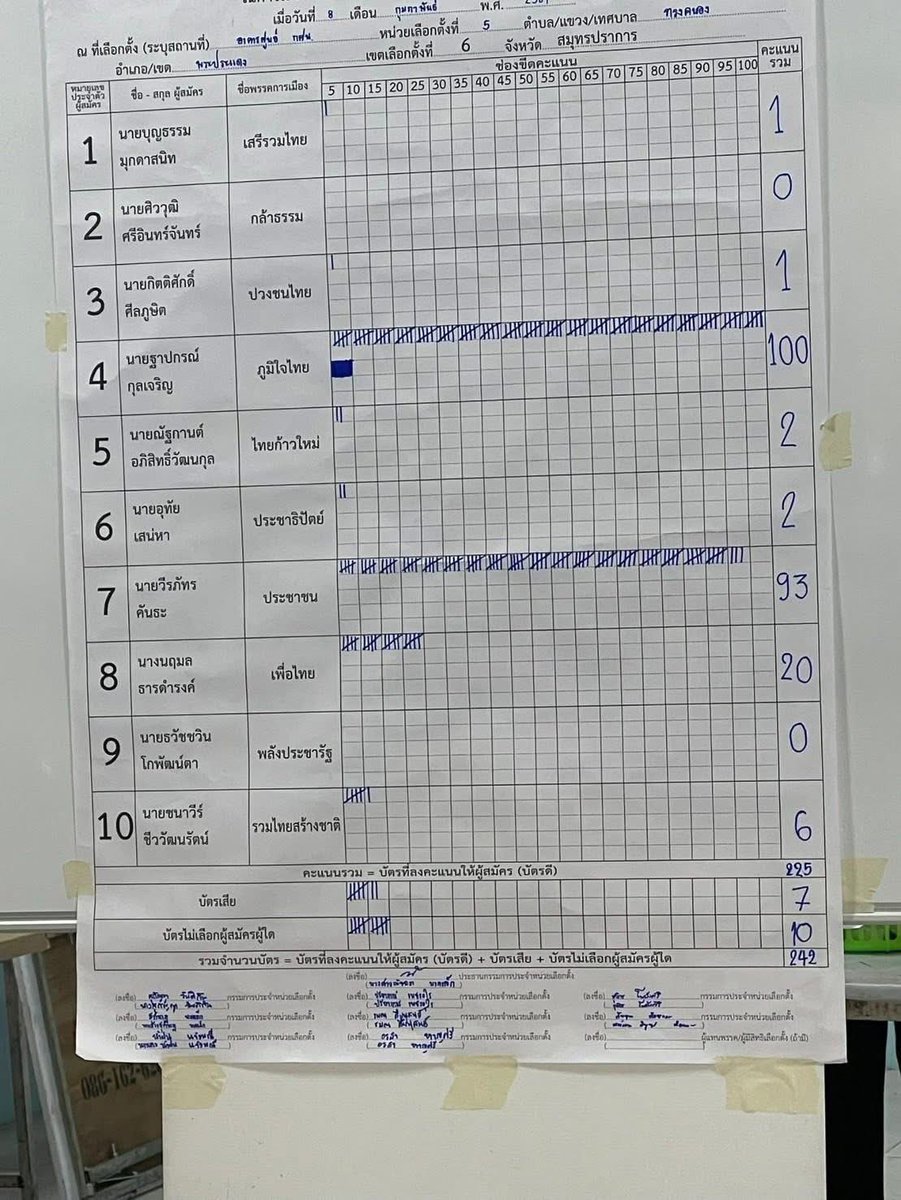 เมื่อวันที่ 8 เดือน กุมภาพันธ์ พ.ศ.
ณ ที่เลือกตั้ง (ระบุสถานที่) อาคารศูนย์ กศน. หน่วยเลือกตั้งที่ 5 ตำบล/แขวง/เทศบาล ทรงคนอง
อำเภอ/เขต พระประแดง เขตเลือกตั้งที่ 6 จังหวัด สมุทรปราการ
หมายเลขประจำตัวผู้สมัคร ชื่อ - สกุล ผู้สมัคร ชื่อพรรคการเมือง ช่องขีดคะแนน คะแนนรวม
5 10 15 20 25 30 35 40 45 50 55 60 65 70 75 80 85 90 95 100
1 นายบุญธรรม มุกดาสนิท เสรีรวมไทย 1
2 นายศิววุฒิ ศรีอินทร์จันทร์ กล้าธรรม 0
3 นายกิตติศักดิ์ ศีลภูษิต ปวงชนไทย 1
4 นายฐาปกรณ์ กุลเจริญ ภูมิใจไทย 100
5 นายณัฐกานต์ อภิสิทธิ์วัฒนกุล ไทยก้าวใหม่ 2
6 นายอุทัย เสน่หา ประชาธิปัตย์ 2
7 นายวีรภัทร คันธะ ประชาชน 93
8 นางนฤมล ธารดำรงค์ เพื่อไทย 20
9 นายธวัชชวิน โกพัฒน์ตา พลังประชารัฐ 0
10 นายชนาวีร์ ชีววัฒนรัตน์ รวมไทยสร้างชาติ 6
คะแนนรวม = บัตรที่ลงคะแนนให้ผู้สมัคร (บัตรดี) 225
บัตรเสีย 7
บัตรไม่เลือกผู้สมัครผู้ใด 10
รวมจำนวนบัตร = บัตรที่ลงคะแนนให้ผู้สมัคร (บัตรดี) + บัตรเสีย + บัตรไม่เลือกผู้สมัครผู้ใด 242
(ลงชื่อ) ประธานกรรมการประจำหน่วยเลือกตั้ง
(ลงชื่อ) กรรมการประจำหน่วยเลือกตั้ง (ลงชื่อ) กรรมการประจำหน่วยเลือกตั้ง (ลงชื่อ) กรรมการประจำหน่วยเลือกตั้ง
(ลงชื่อ) กรรมการประจำหน่วยเลือกตั้ง (ลงชื่อ) กรรมการประจำหน่วยเลือกตั้ง (ลงชื่อ) กรรมการประจำหน่วยเลือกตั้ง
(ลงชื่อ) กรรมการประจำหน่วยเลือกตั้ง (ลงชื่อ) กรรมการประจำหน่วยเลือกตั้ง (ลงชื่อ) ผู้แทนพรรค/ผู้มีสิทธิเลือกตั้ง (ถ้ามี)